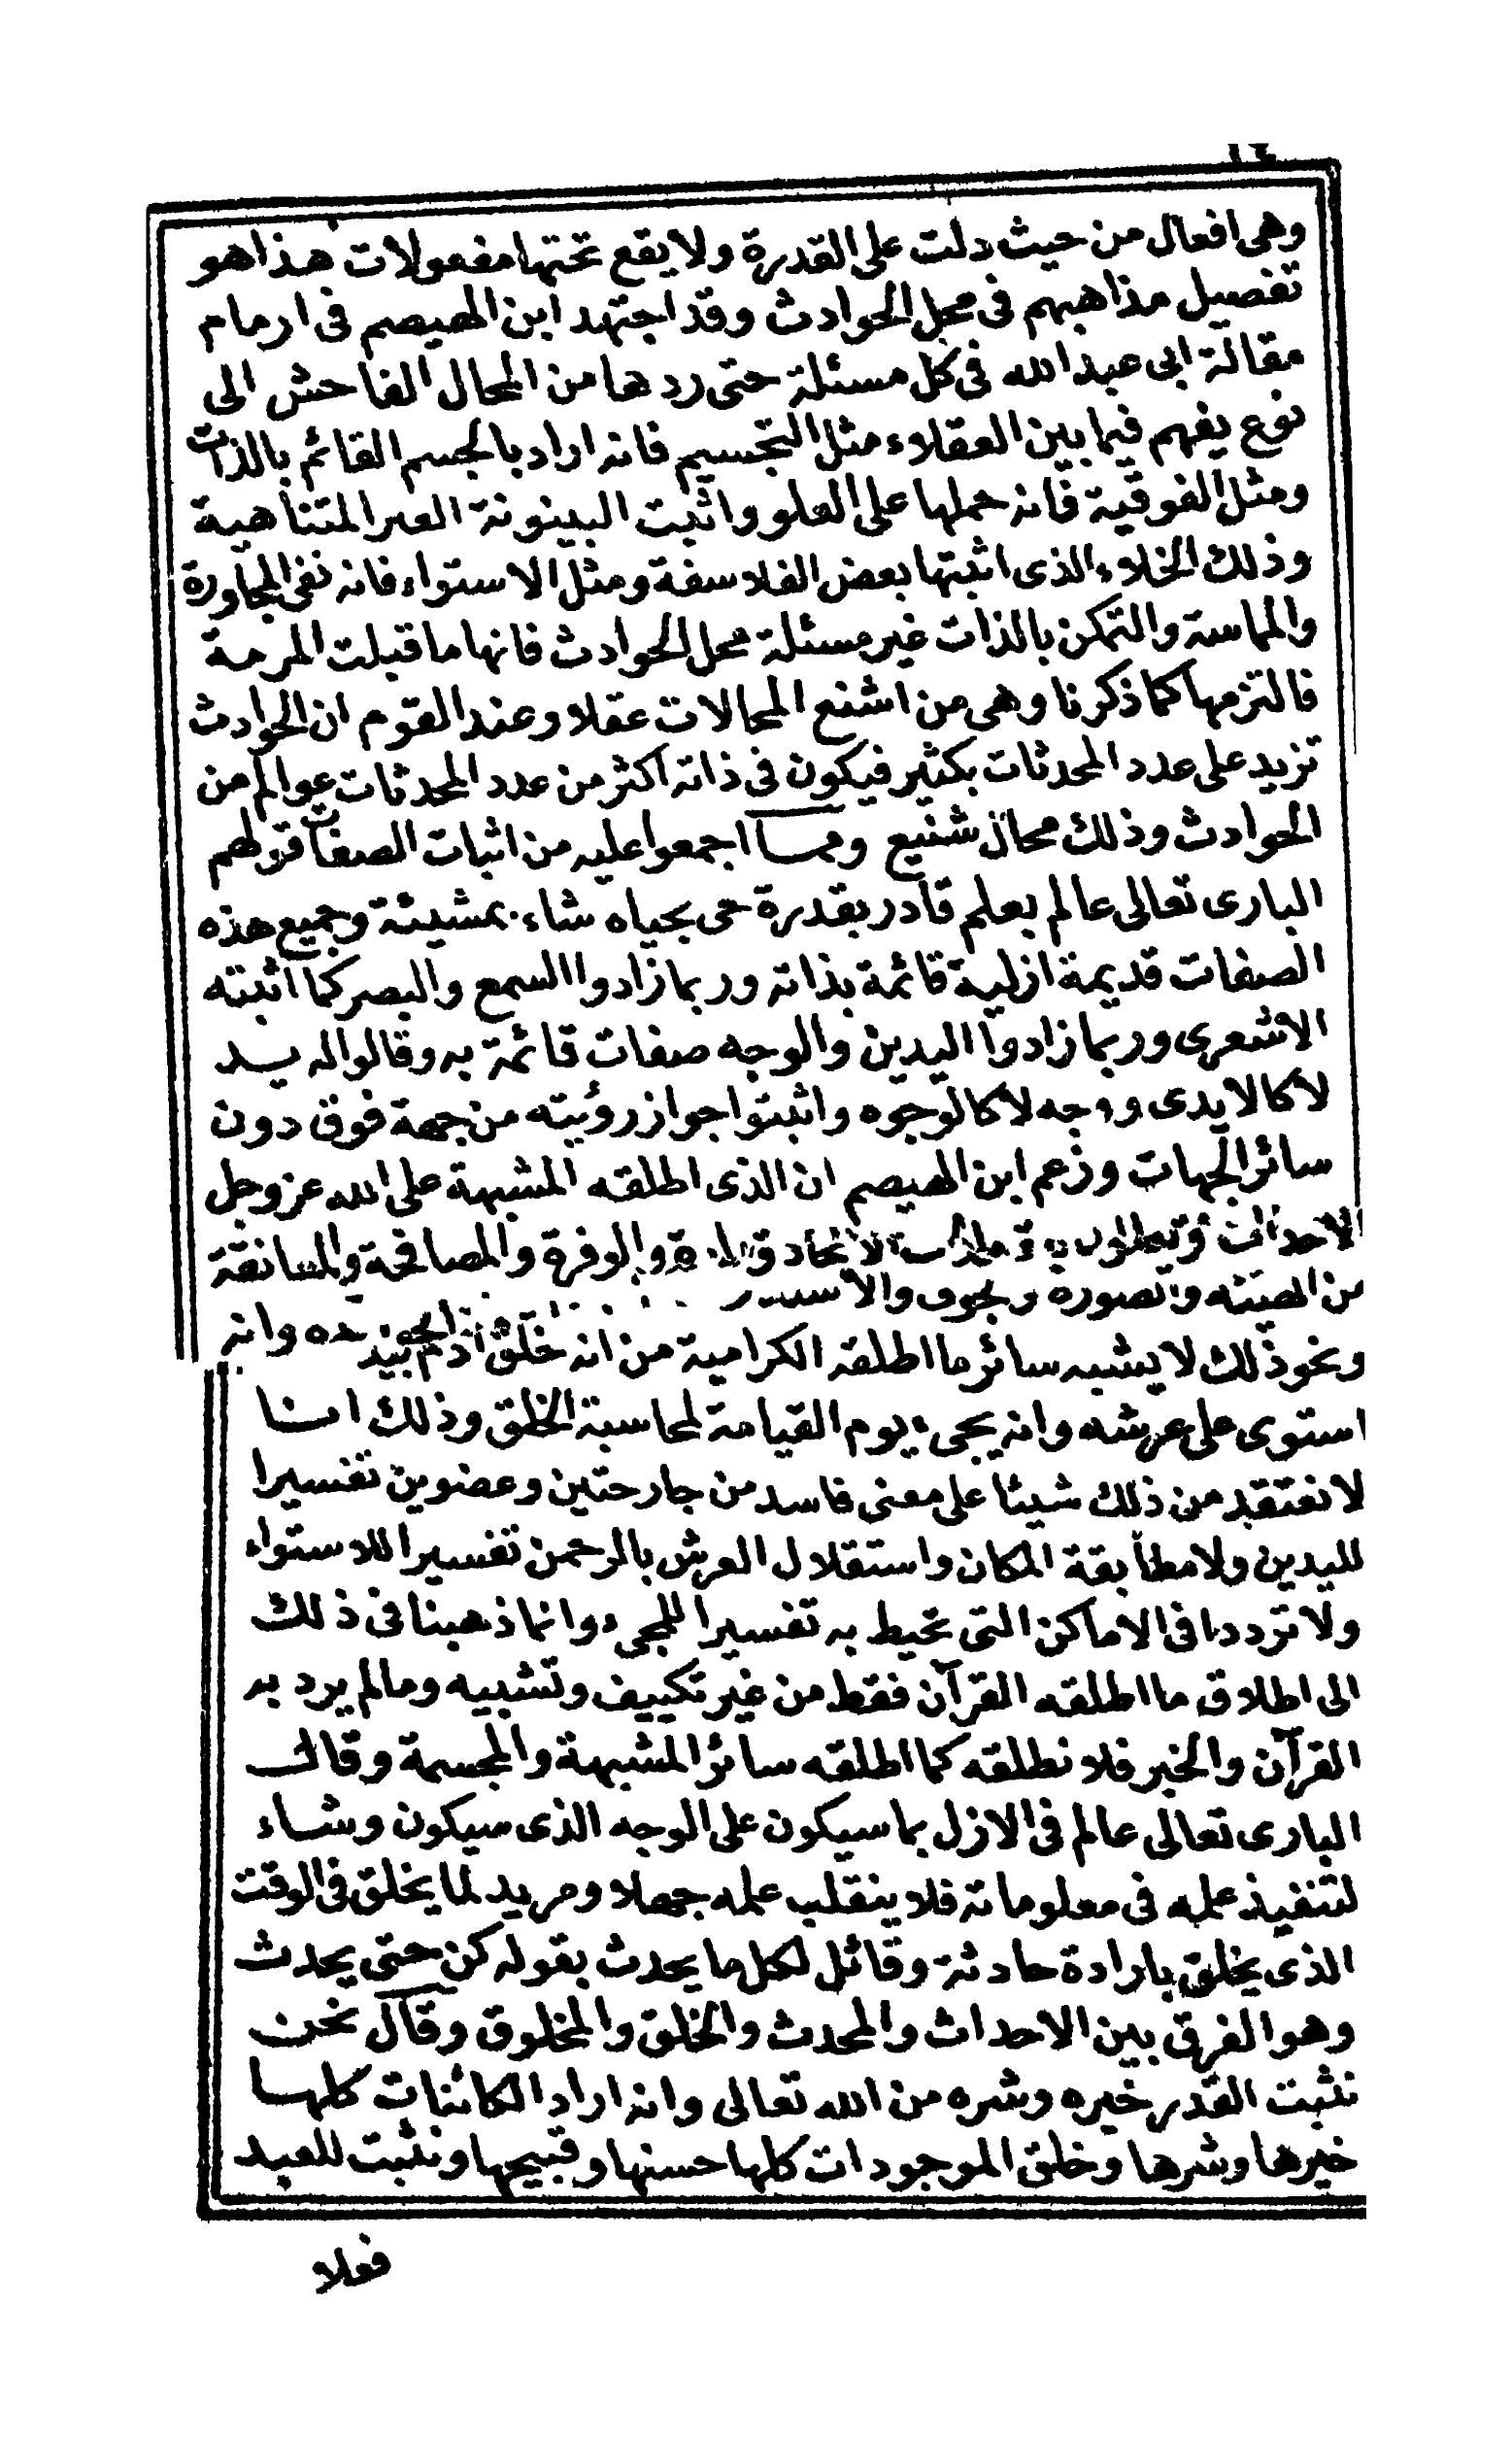 وهى افعال من حيث دلت على القدرة ولا يقع تحتها مفعولات هذا هو
تفصيل مذاهبهم فى محل الحوادث وقد اجتهد ابن الهيصم فى ارمام
مقالة ابى عبد الله فى كل مسئلة حتى ردها من المحال الفاحش الى
نوع يفهم فيما بين العقلاء مثل التجسيم فانه اراد بالجسم القائم بالذات
ومثل الفوقية فانه حملها على العلو واثبت البينونة الغير المتناهية
وذلك الخلاء الذى اثبتها بعض الفلاسفة ومثل الاستواء فانه نفى المجاورة
والمماسة والتمكن بالذات غير مسئلة محل الحوادث فانها ما قبلت المرمة
فالتزمها كما ذكرنا وهى من اشنع المحالات عقلا وعند القوم ان الحوادث
تزيد على عدد المحدثات بكثير فيكون فى ذاته اكثر من عدد المحدثات عوالم من
الحوادث وذلك محال شنيع ومما اجمعوا عليه من اثبات الصفات قولهم
البارى تعالى عالم بعلم قادر بقدرة حى بحياه شاء بمشيئة وجميع هذه
الصفات قديمة ازلية قائمة بذاته وربما زادوا السمع والبصر كما اثبته
الاشعرى وربما زادوا اليدين والوجه صفات قائمة به وقالوا له يد
لا كالايدى ووجه لا كالوجوه واثبتوا جواز رؤيته من جهة فوق دون
سائر الجهات وزعم ابن الهيصم ان الذى اطلقه المشبهة على الله عز وجل
والوفرة والمصافحة والمعانقة
من الهيئه والصورة والجوف والا
ونحو ذلك لا يشبه سائر ما اطلقه الكرامية من انه خلق آدم بيده وانه
استوى على عرشه وانه يجىء يوم القيامة لمحاسبة الخلق وذلك انا
لا نعتقد من ذلك شيئا على معنى فاسد من جارحتين وعضوين تفسيرا
لليدين ولا مطابقة المكان واستقلال العرش بالرحمن تفسيرا للاستواء
ولا ترددا فى الاماكن التى تحيط به تفسيرا للمجىء وانما ذهبنا فى ذلك
الى اطلاق ما اطلقه القرآن فقط من غير تكييف وتشبيه وما لم يرد به
القرآن والخبر فلا نطلقه كما اطلقه سائر المشبهة والمجسمة وقال
البارى تعالى عالم فى الازل بما سيكون على الوجه الذى سيكون وشاء
لتنفيذ علمه فى معلوماته فلا ينقلب علمه جهلا ومريد لما يخلق فى الوقت
الذى يخلق بارادة حادثة وقائل لكل ما يحدث بقوله كن حتى يحدث
وهو الفرق بين الاحداث والمحدث والخلق والمخلوق وقال نحن
نثبت القدر خيره وشره من الله تعالى وانه اراد الكائنات كلها
خيرها وشرها وخلق الموجودات كلها حسنها وقبيحها ونثبت للعبد
فعلا